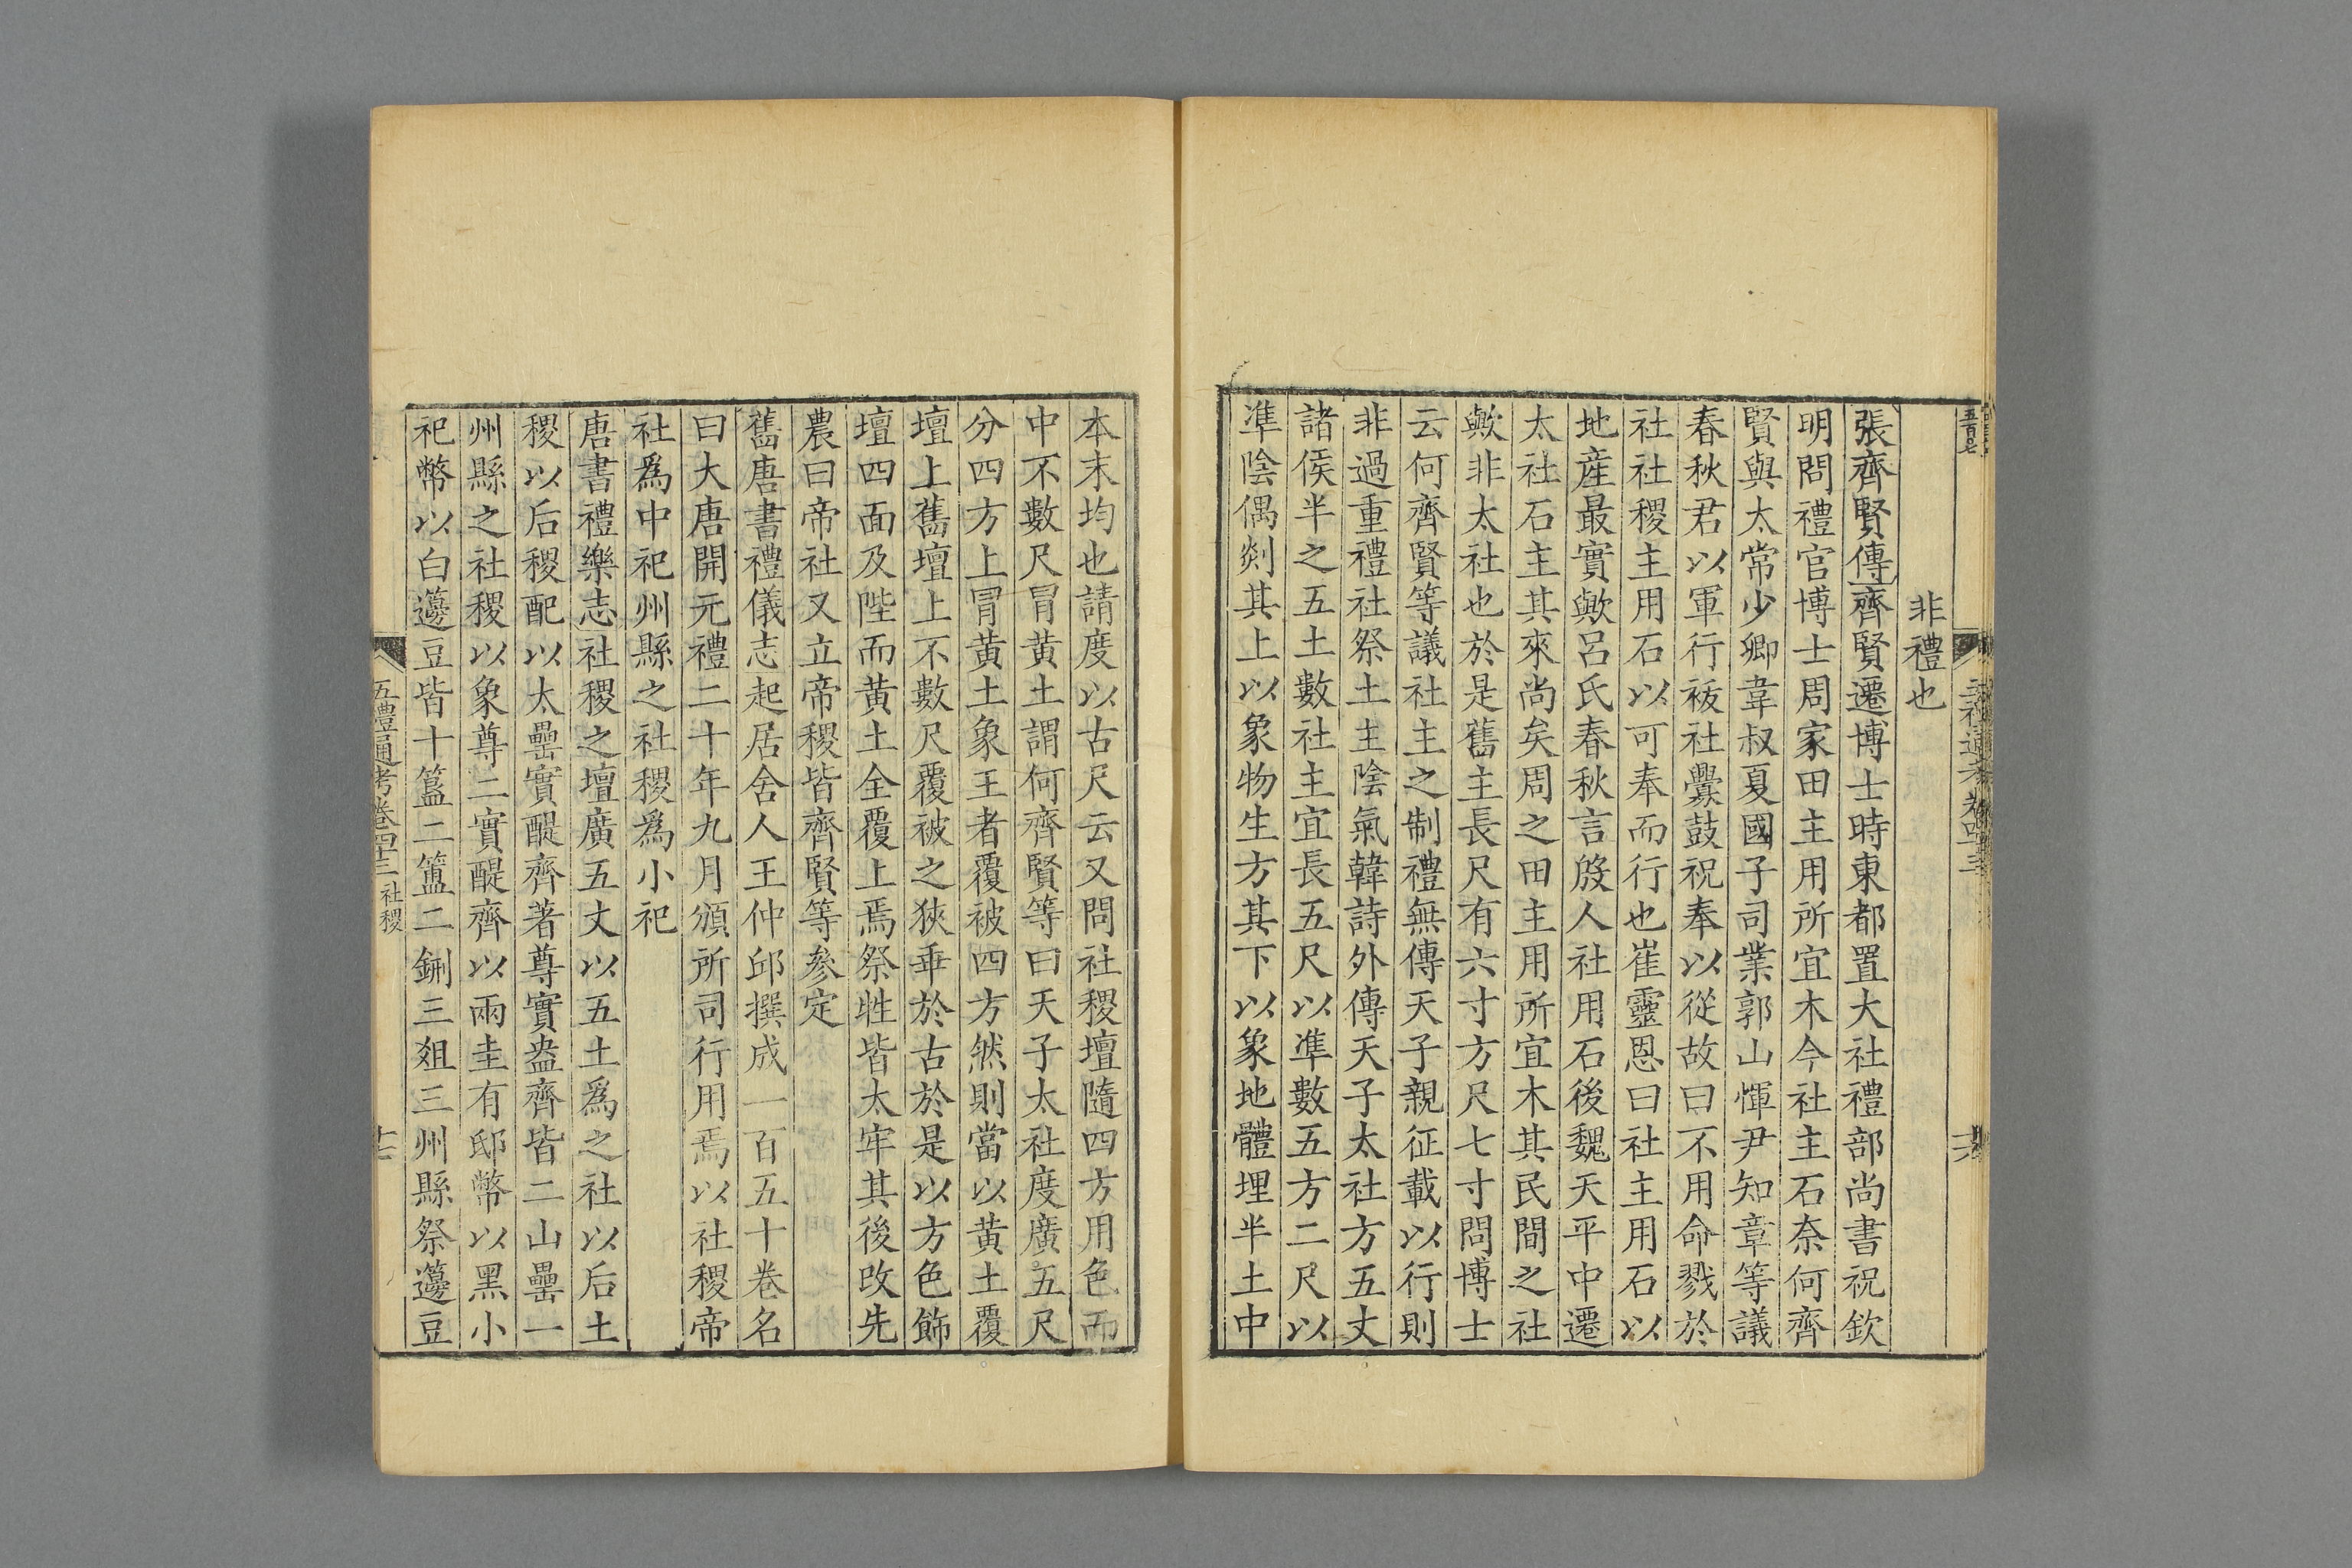 非禮也
張齊賢傳齊賢遷博士時東都置大社禮部尚書祝欽
明問禮官博士周家田主用所宜木今社主石奈何齊
賢與太常少卿韋叔夏國子司業郭山惲尹知章等議
春秋君以軍行祓社釁鼓祝奉以從故曰不用命戮於
社社稷主用石以可奉而行也崔靈恩曰社主用石以
地產最實歟呂氏春秋言殷人社用石後魏天平中遷
太社石主其來尚矣周之田主用所宜木其民間之社
歟非太社也於是舊主長尺有六寸方尺七寸問博士
云何齊賢等議社主之制禮無傳天子親征載以行則
非過重禮社祭土主陰氣韓詩外傳天子太社方五丈
諸侯半之五土數社主宜長五尺以準數五方二尺以
準陰偶剡其上以象物生方其下以象地體埋半土中
本末均也請度以古尺云又問社稷壇隨四方用色而
中不數尺冒黃土謂何齊賢等曰天子太社度廣五尺
分四方上冒黃土象王者覆被四方然則當以黃土覆
壇上舊壇上不數尺覆被之狹乖於古於是以方色飾
壇四面及陛而黃土全覆上焉祭牲皆太牢其後改先
農曰帝社又立帝稷皆齊賢等參定
舊唐書禮儀志起居舍人王仲邱撰成一百五十卷名
曰大唐開元禮二十年九月頒所司行用焉以社稷帝
社爲中祀州縣之社稷爲小祀
唐書禮樂志社稷之壇廣五丈以五土爲之社以后土
稷以后稷配以太罍實醍齊著尊實盎齊皆二山罍一
州縣之社稷以象尊二實醍齊以兩圭有邸幣以黑小
祀幣以白籩豆皆十簋二簠二鉶三俎三州縣祭籩豆
五禮通考卷四十三 社稷